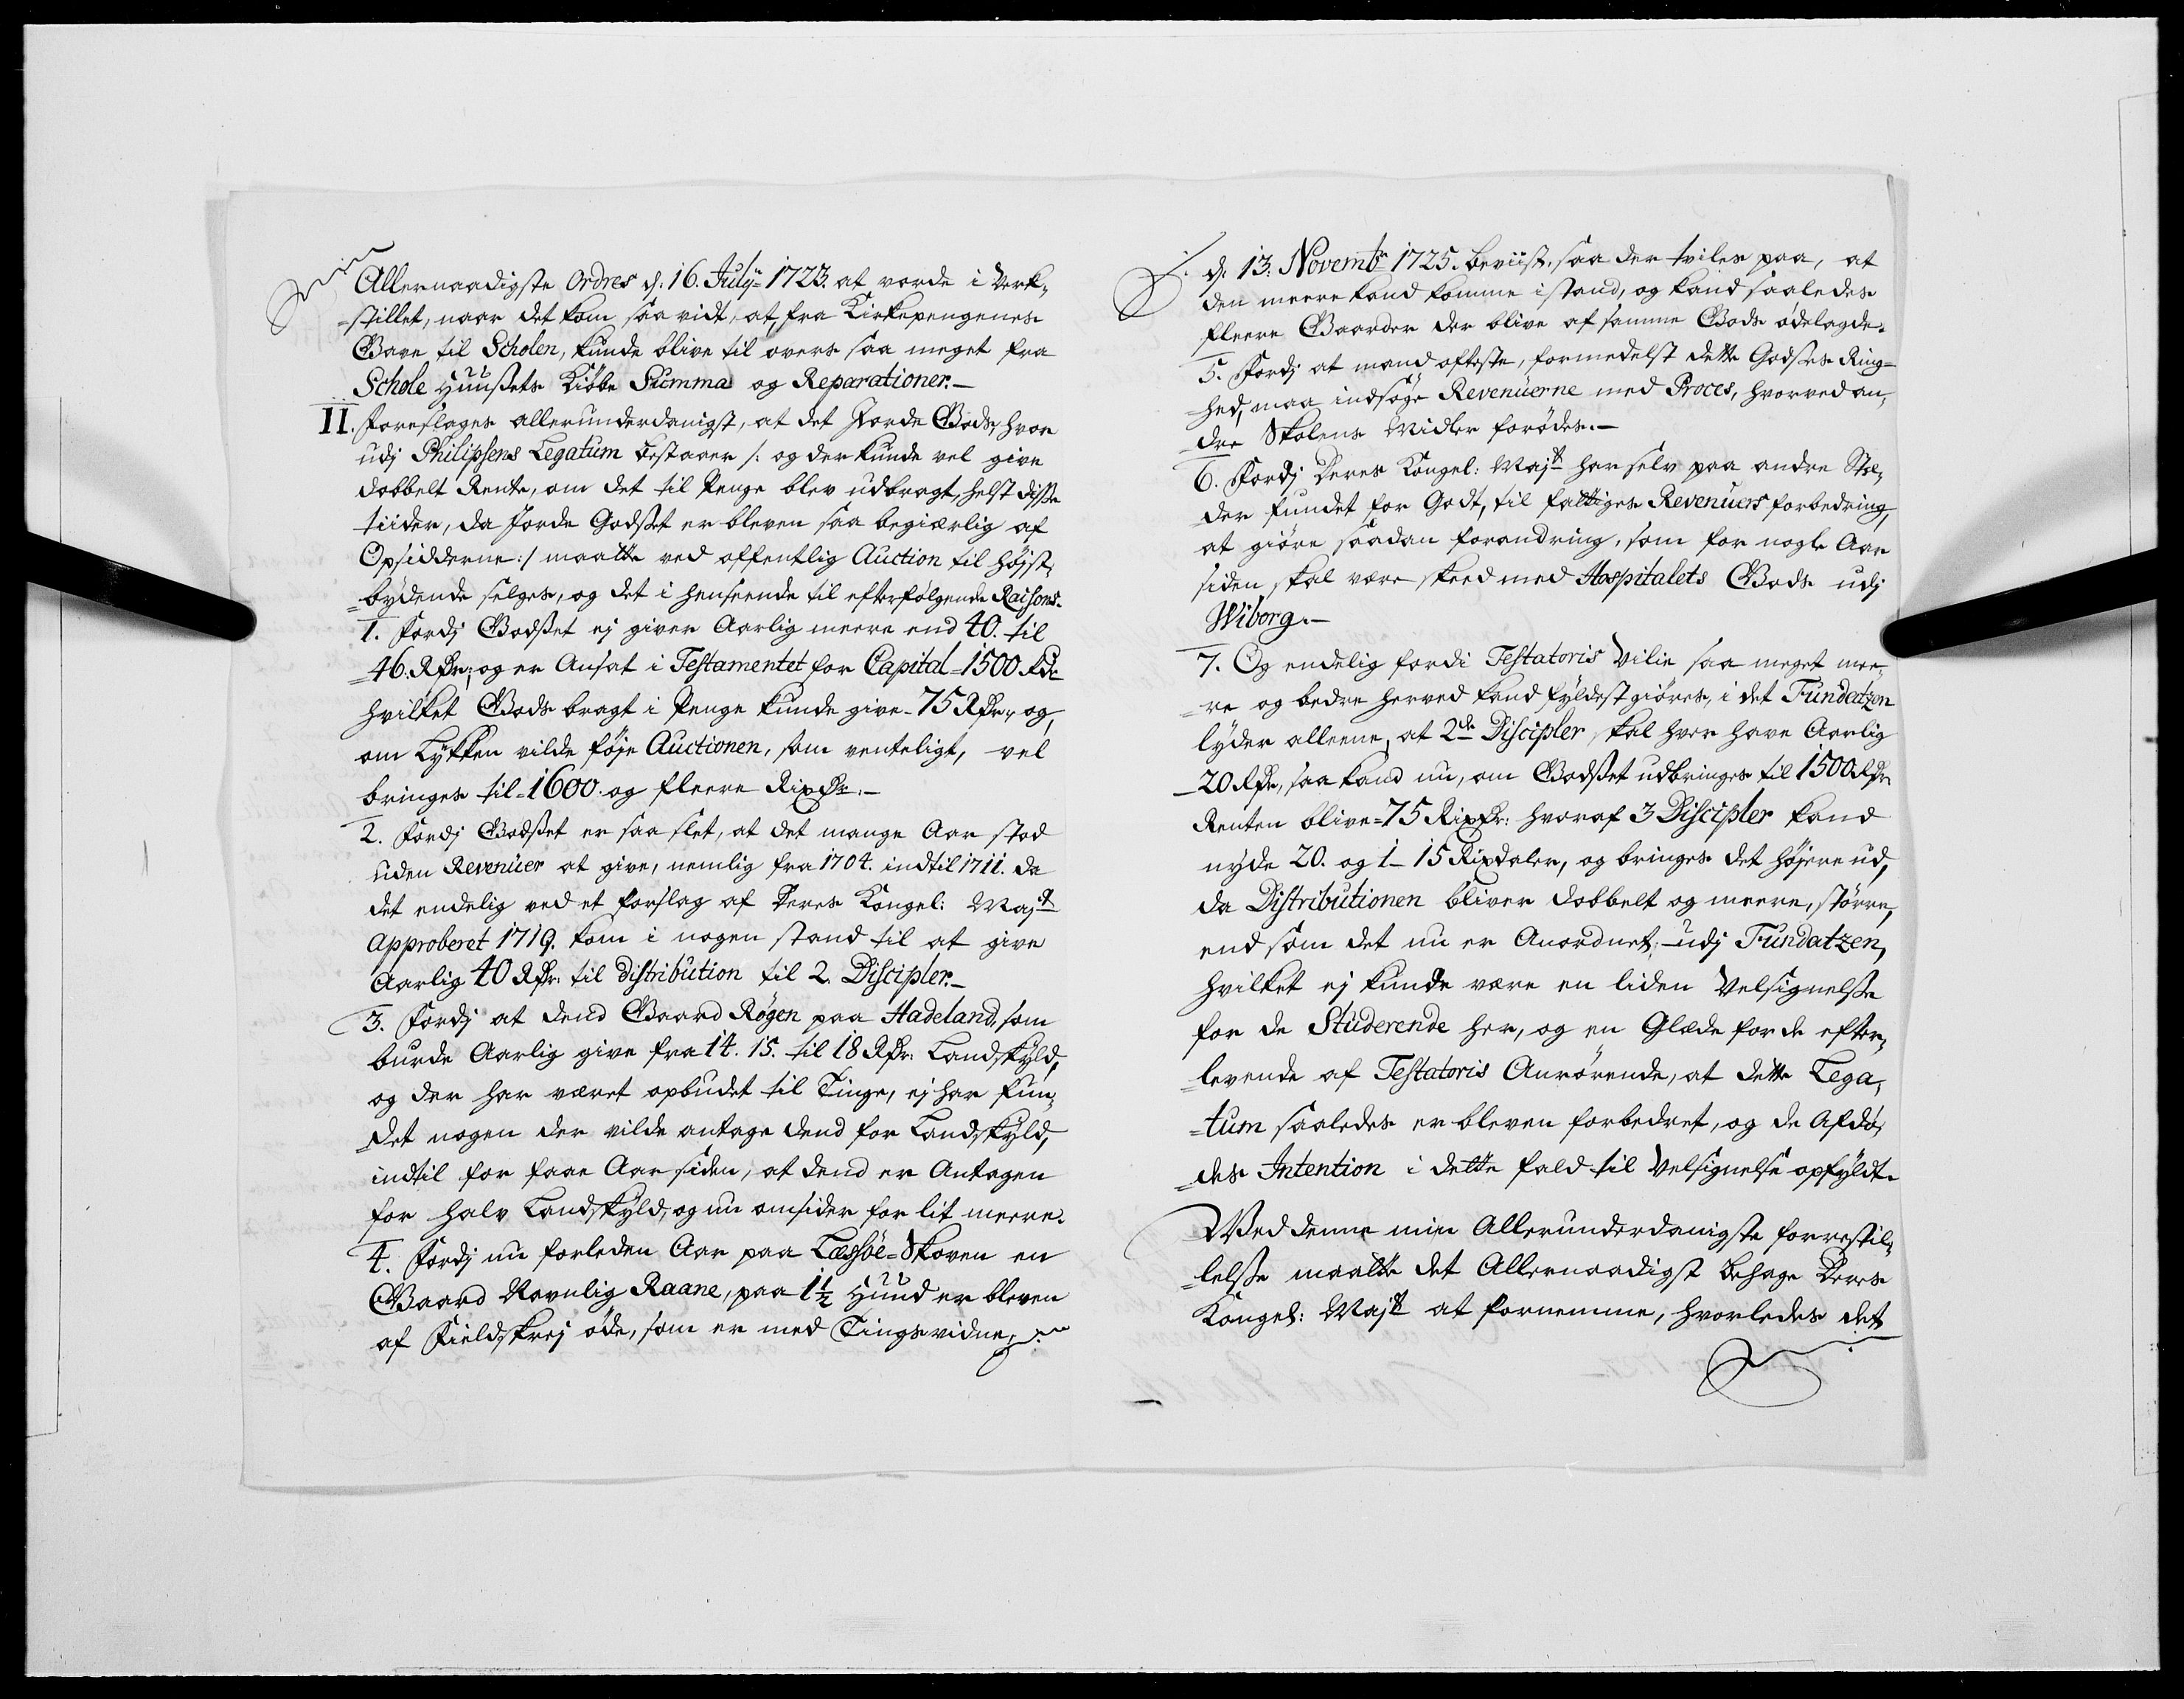 Allernaadigste Ordres d. 16. July 1723. at vorde i Verk-
stillet, naar det kom saa vidt, at, fra Kirkepengenes
Gave til Scholen, kunde blive til overs saa meget fra
Schole Huußets Kiøbe Summa og Reparationer.-
II. foreslages allerunderdanigst, at det Jorde Gods, hvor
udj Philipsens Legatum bestaaer /: og der kunde vel give
dobbelt Rente, om det til Penge blev udbragt, helst disse
tiider, da Jorde Godset er bleven saa begiærlig af
Opsidderne :/ maatte ved offentlig Auction til højst-
bydende selges, og det i henseende til efterfølgende Raisons.
1. Fordj Godset ej giver Aarlig meere end 40. til
46. Rdr; og er Ansat i Testamentet for Capital 1500 Rdr
hvilket Gods bragt i Penge kunde give 75 Rdr, og,
om Lykken vilde føje Auctionen, som venteligt, vel
bringes til 1600. og fleere Rixdr.-
2. Fordj Godset er saa slet, at det mange Aar stod
uden Revenuer at give, nemlig fra 1704. indtil 1711. da
det endelig ved et forslag af Deres Kongel: Majt
approberet 1719. kom i nogen stand til at give
Aarlig 40 Rdr. til distribution til 2. Discipler.-
3. Fordj at dend Gaard Røgen paa Hadeland, som
burde Aarlig give fra 14. 15. til 18 Rdr: Landskyld,
og der har været opbudet til Tinge, ej har fun-
det nogen der vilde antage dend for Landskyld,
indtil for faae Aar siden, at dend er Antagen
for halv Landskyld, og nu omsider for lit meere.
4. Fordj nu forleden Aar paa Læssøe-Skoven en
Gaard Navnlig Raane, paa 1½ Huud er bleven
af Fieldskrej øde, som er med Tingsvidne
d. 13. Novembr 1725. beviist, saa der tviles paa, at
den meere kand komme i stand, og kand saaledes
fleere Gaarder der blive af samme Gods ødelagde.
5. Fordj at mand ofteste, formedelst dette Godses Ring-
hed, maa indsøge Revenuerne med Proces, hvorved an-
dre Skolens Midler forødes.-
6. Fordj Deres Kongel: Majt har selv paa andre Stæ-
der fundet for Godt, til fattiges Revenuers forbedring,
at giøre saadan forandring, som for nogle Aar
siden skal være skeed med Hospitalets Gods udj
Wiborg.-
7. Og endelig fordi Testatoris Vilie saa meget mee-
re og bedre herved kand fyldestgiøres, i det Fundatzen
lyder alleene, at 2de Discipler skal hver have Aarlig
20 Rdr, saa kand nu, om Godset udbringes til 1500 Rdr
Renten blive 75 Rixdr: hvoraf 3 Discipler kand
nyde 20. og 1- 15 Rixdaler, og bringes det højere ud,
da Distributionen bliver dobbelt og meere, større,
end som det nu er Anordnet udj Fundatzen,
hvilket ej kunde være en liden Velsignelse
for de Studerende her, og en Glæde for de efter-
levende af Testatoris Anrørende, at dette Lega-
tum saaledes er bleven forbedret, og de Afdø-
des Intention i dette fald til Velsignelse opfyldt.
Ved denne min Allerunderdanigste forrestil-
lelse maatte det Allernaadigst behage Deres
Kongel: Majt at fornemme, hvorledes det